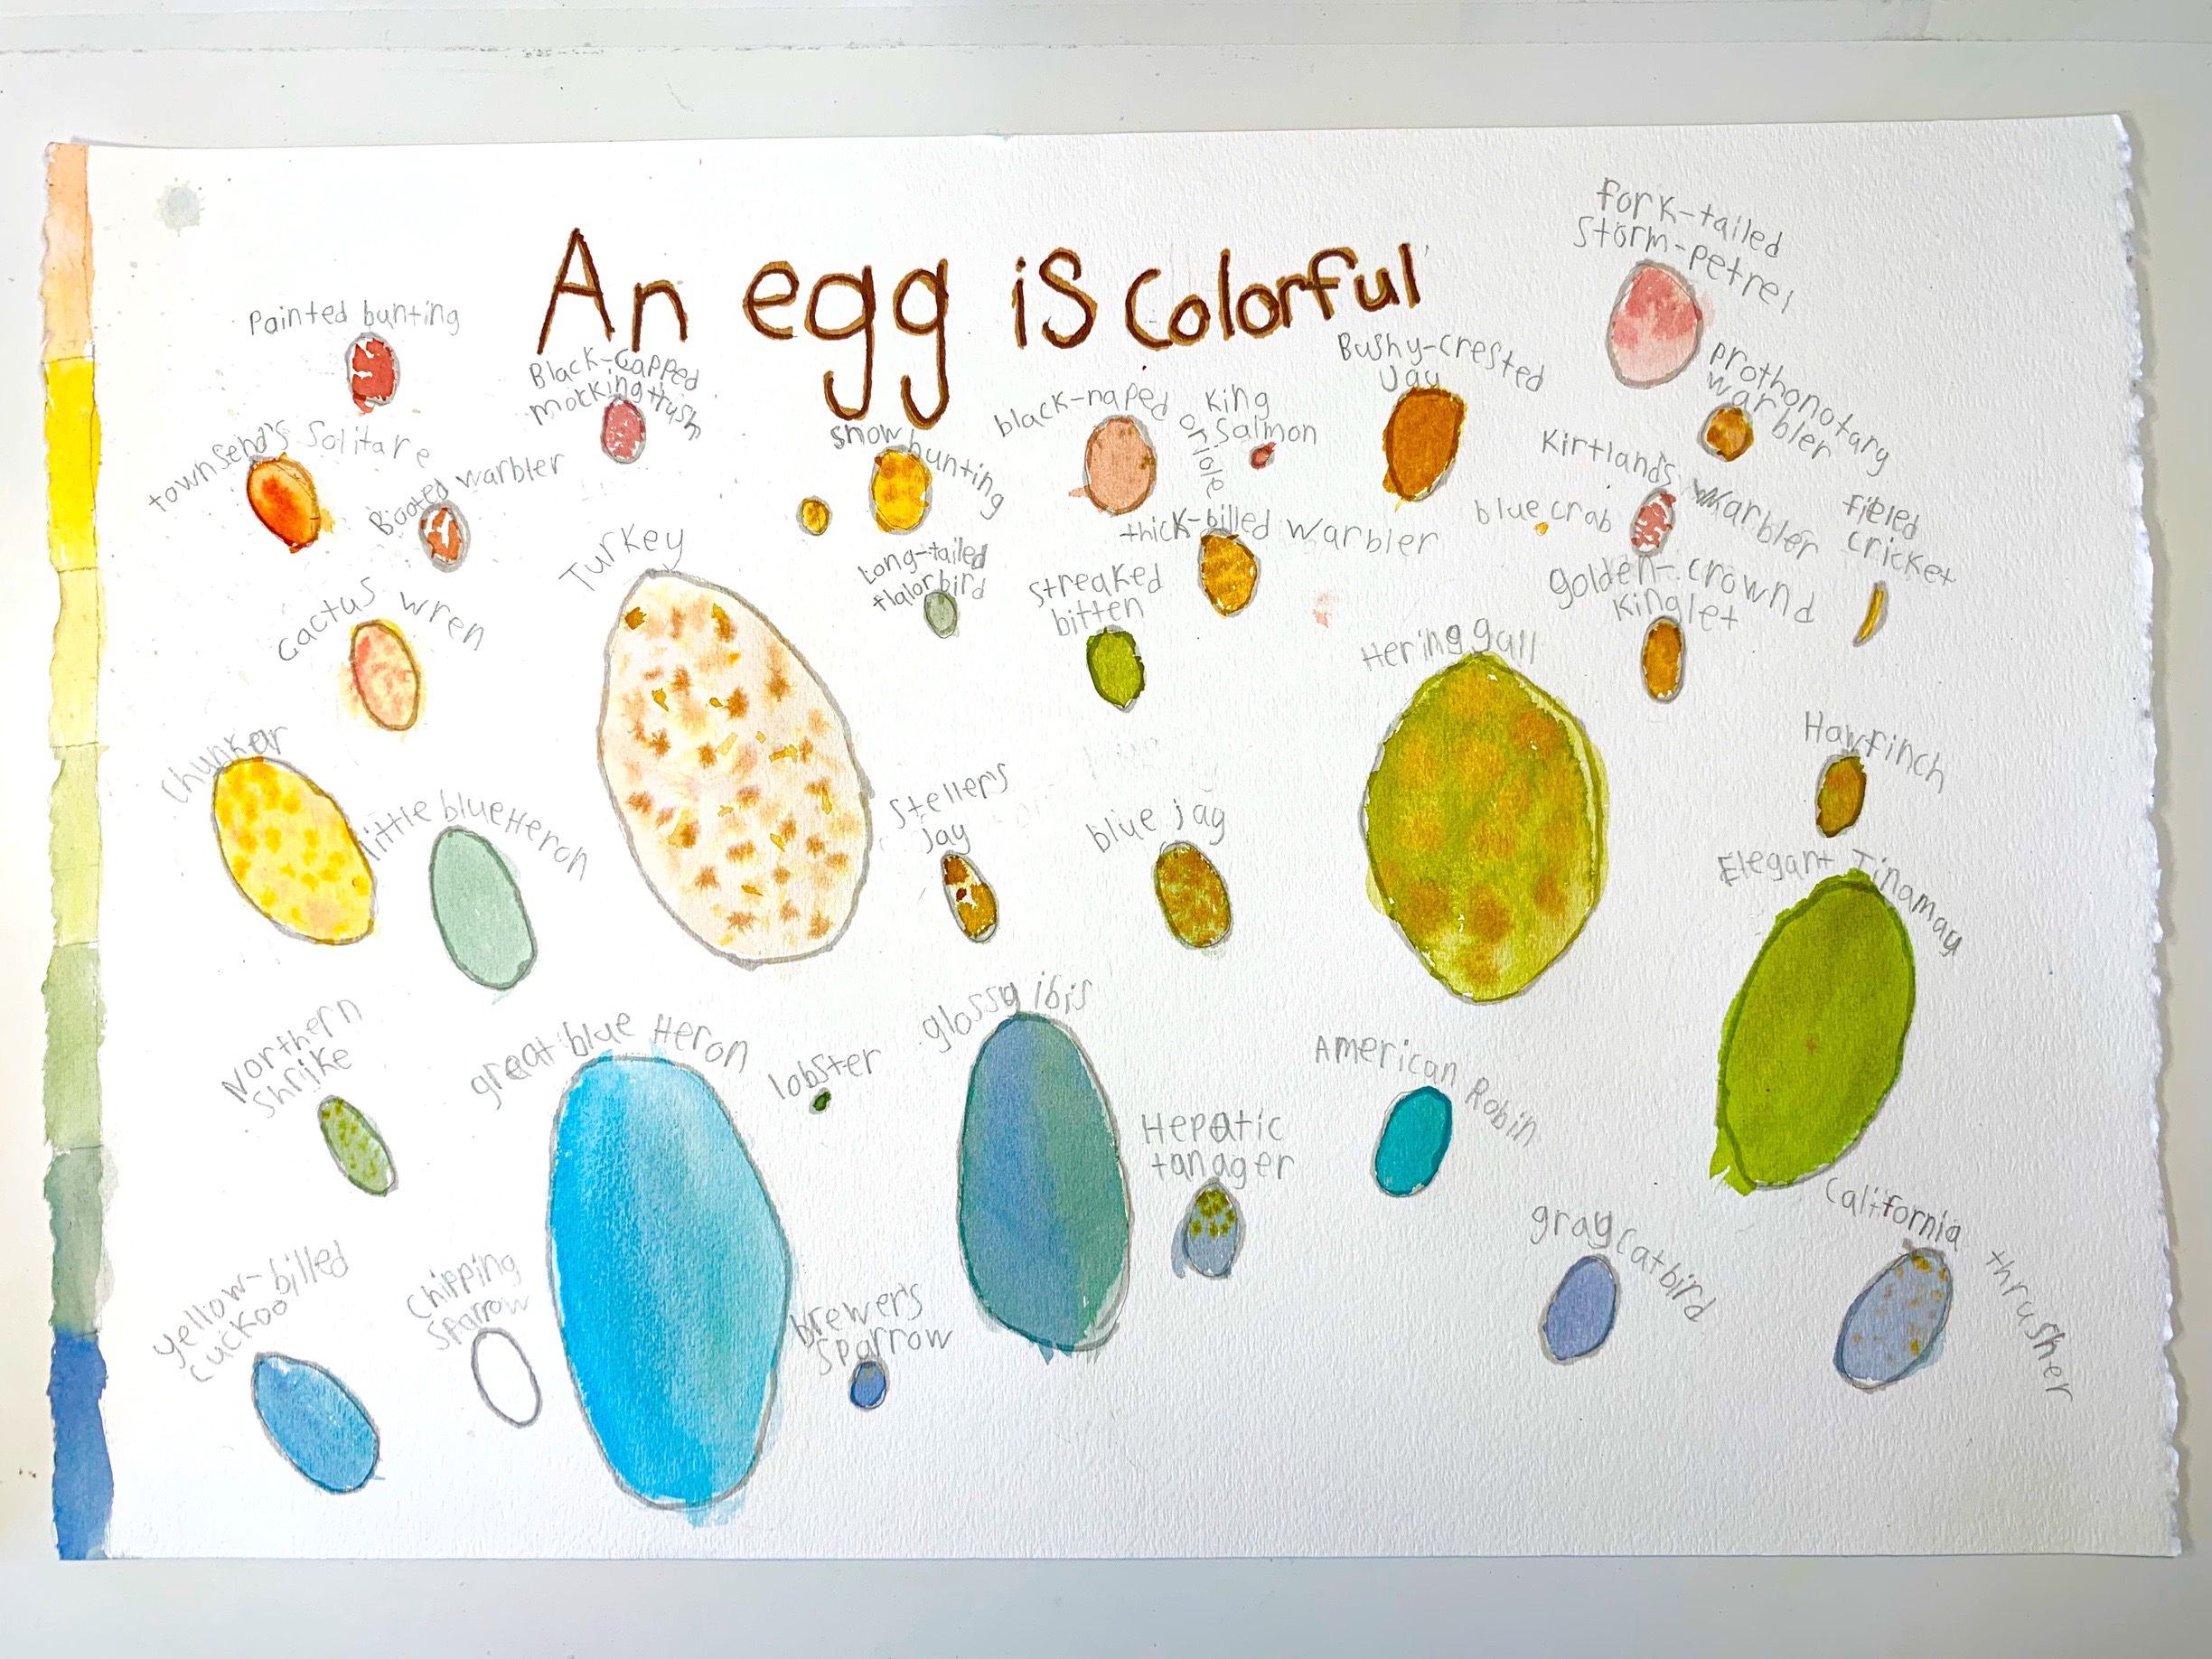 An egg is colorful
fork-tailed
storm-petrel
Painted bunting
Black-capped
mockingthush
Bushy-crested
Jay
prothonotary
warbler
townsend's Solitare
Booted warbler
snow bunting
black-naped oriole
King
Salmon
Kirtlands Warbler
blue crab
fieled
cricket
thick-billed warbler
Turkey
Long-tailed
tlalorbird
streaked
bitten
golden-crownd
Kinglet
cactus wren
Hering gull
Chunkar
little blue Heron
Stellers
jay
blue jay
Hawfinch
Elegant Tinamay
Northern
Shrike
great blue Heron
lobster
glossy ibis
Hepatic
tanager
American Robin
California thrusher
gray catbird
yellow-billed
cuckoo
Chipping
Sparrow
brewers
Sparrow